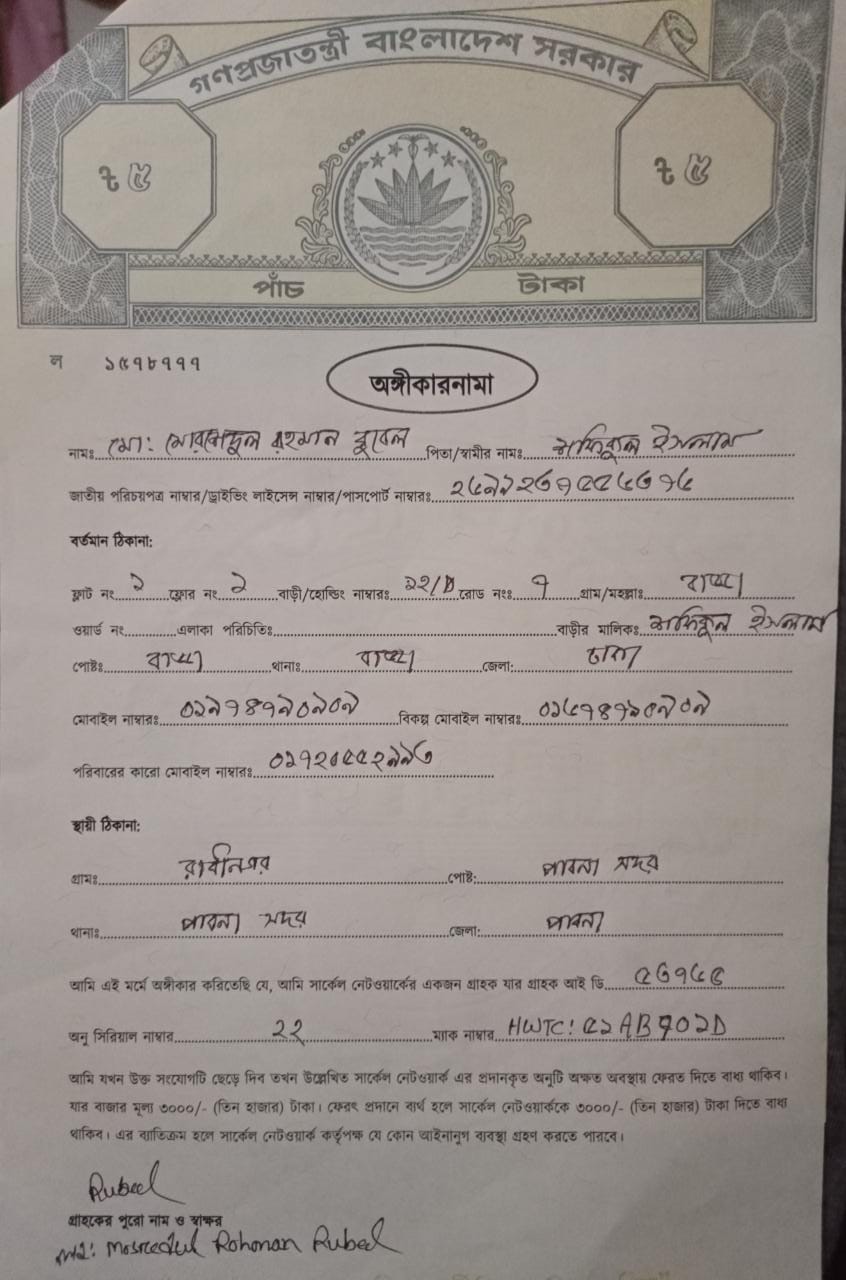 গণপ্রজাতন্ত্রী বাংলাদেশ সরকার
৳ ৫ ৳ ৫
পাঁচ টাকা
ল ১৫৭৮৭৭৭
অঙ্গীকারনামা
নামঃ মো: মোরশেদুল রহমান রুবেল পিতা/স্বামীর নামঃ শফিকুল ইসলাম
জাতীয় পরিচয়পত্র নাম্বার/ড্রাইভিং লাইসেন্স নাম্বার/পাসপোর্ট নাম্বারঃ
বর্তমান ঠিকানা:
ফ্লাট নং ১ ফ্লোর নং ১ বাড়ী/হোল্ডিং নাম্বারঃ ১২/D রোড নংঃ ৭ গ্রাম/মহল্লাঃ বাড্ডা
ওয়ার্ড নং এলাকা পরিচিতিঃ বাড়ীর মালিকঃ শফিকুল ইসলাম
পোষ্টঃ বাড্ডা থানাঃ বাড্ডা জেলা: ঢাকা
মোবাইল নাম্বারঃ ০১৯৭৪৭৯০৯০৯ বিকল্প মোবাইল নাম্বারঃ ০১৬৭৪৭৯০৯০৯
পরিবারের কারো মোবাইল নাম্বারঃ
স্থায়ী ঠিকানা:
গ্রামঃ পোষ্ট: পাবনা সদর
থানাঃ পাবনা সদর জেলা: পাবনা
আমি এই মর্মে অঙ্গীকার করিতেছি যে, আমি সার্কেল নেটওয়ার্কের একজন গ্রাহক যার গ্রাহক আই ডি ৫৩৭৬৫
অনু সিরিয়াল নাম্বার ২২ ম্যাক নাম্বার HWTC: ৫১AB৭০১D
আমি যখন উক্ত সংযোগটি ছেড়ে দিব তখন উল্লেখিত সার্কেল নেটওয়ার্ক এর প্রদানকৃত অনুটি অক্ষত অবস্থায় ফেরত দিতে বাধ্য থাকিব।
যার বাজার মূল্য ৩০০০/- (তিন হাজার) টাকা। ফেরৎ প্রদানে ব্যর্থ হলে সার্কেল নেটওয়ার্ককে ৩০০০/- (তিন হাজার) টাকা দিতে বাধ্য
থাকিব। এর ব্যতিক্রম হলে সার্কেল নেটওয়ার্ক কর্তৃপক্ষ যে কোন আইনানুগ ব্যবস্থা গ্রহণ করতে পারবে।
Rubel
গ্রাহকের পুরো নাম ও স্বাক্ষর
Rohoman Rubel